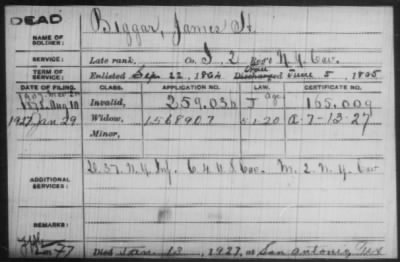 DEAD
NAME OF SOLDIER: Biggar, James H.
SERVICE: Late rank, Co. I, 2 Reg't N.Y. Cav.
TERM OF SERVICE: Enlisted Sep. 22, 1864 Discharged June 5, 1865
DATE OF FILING. CLASS. APPLICATION NO. CERTIFICATE NO.
1878. Aug 10 Invalid, 259.036 165.009
1927 Jan 29 Widow, 1568907 A-7-13-27
Minor,
ADDITIONAL SERVICES: D. 37. N.Y. Inf. C 4 U.S. Cav. M. 2. N.Y. Cav
REMARKS:
Died Jan. 13, 1927, at San Antonio, Tex